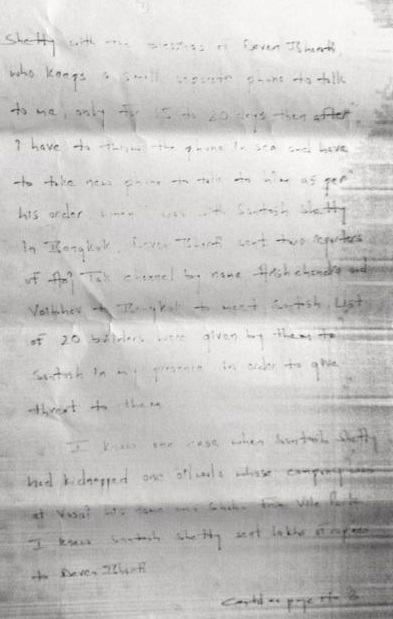 Shetty with the blessings of Deven Bharti
who keeps a small separate phone to talk
to me, only for 15 to 20 days then after
I have to throw the phone in sea and have
to take new phone to talk to him as per
his order. when I was with Santosh Shetty
in Bangkok, Deven Bharti sent two reporters
of Aaj Tak channel by name and
Vaibhav to Bangkok to meet Santosh. List
of 20 builders were given by them to
Santosh in my presence in order to give
threat to them
I know one case when Santosh Shetty
had kidnapped one whose company was
at Vasai his name was from Ville Parle
I know Santosh Shetty sent lakhs of rupees
to Deven Bharti
Contd on page No